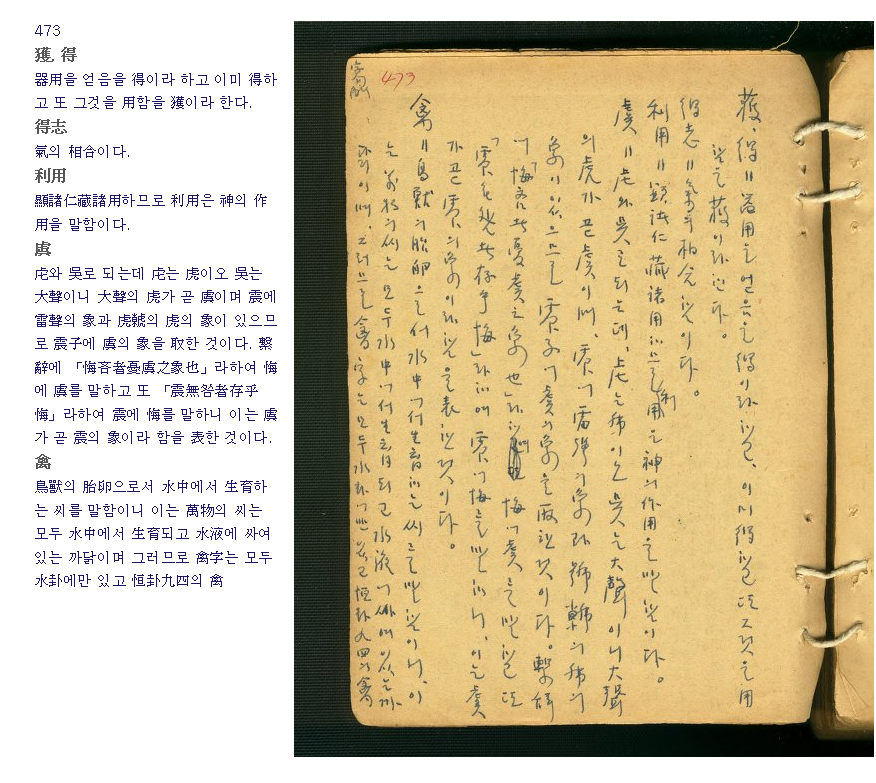 473
獲, 得
器用을 얻음을 得이라 하고 이미 得하
고 또 그것을 用함을 獲이라 한다.
得志
氣의 相合이다.
利用
顯諸仁藏諸用하므로 利用은 神의 作
用을 말함이다.
虞
虍와 吳로 되는데 虍는 虎이오 吳는
大聲이니 大聲의 虎가 곧 虞이며 震에
雷聲의 象과 虎虩의 虎의 象이 있으므
로 震子에 虞의 象을 取한 것이다. 繫
辭에 「悔吝者憂虞之象也」라하여 悔
에 虞를 말하고 또 「震無咎者存乎
悔」라하여 震에 悔를 말하니 이는 虞
가 곧 震의 象이라 함을 表한 것이다.
禽
鳥獸의 胎卵으로서 水中에서 生育하
는 씨를 말함이니 이는 萬物의 씨는
모두 水中에서 生育되고 水液에 싸여
있는 까닭이며 그러므로 禽字는 모두
水卦에만 있고 恒卦九四의 禽
473
獲, 得 〃 器用을 얻음을 得이라 하고, 이미 得하고 또 그것을 用
함을 獲이라 한다.
得志 〃 氣의 相合이다.
利用 〃 顯諸仁 藏諸用하므로 利用은 神의 作用을 말함이다.
虞 〃 虍와 吳로 되는데, 虍는 虎이오 吳는 大聲이니 大聲
의 虎가 곧 虞이며, 震에 雷聲의 象과 虎虩의 虎의
象이 있으므로 震子에 虞의 象을 取한 것이다. 繫辭
에 「悔吝者憂虞之象也」라하여 悔에 虞를 말하고 또
「震无咎者存乎悔」라하여 震에 悔를 말하니, 이는 虞
가 곧 震의 象이라 함을 表한 것이다.
禽 〃 鳥獸의 胎卵으로서 水中에서 生育하는 씨를 말함이니, 이
는 萬物의 씨는 모두 水中에서 生育되고 水液에 싸여 있는 까
닭이며, 그러므로 禽字는 모두 水卦에만 있고 恒卦九四의 禽